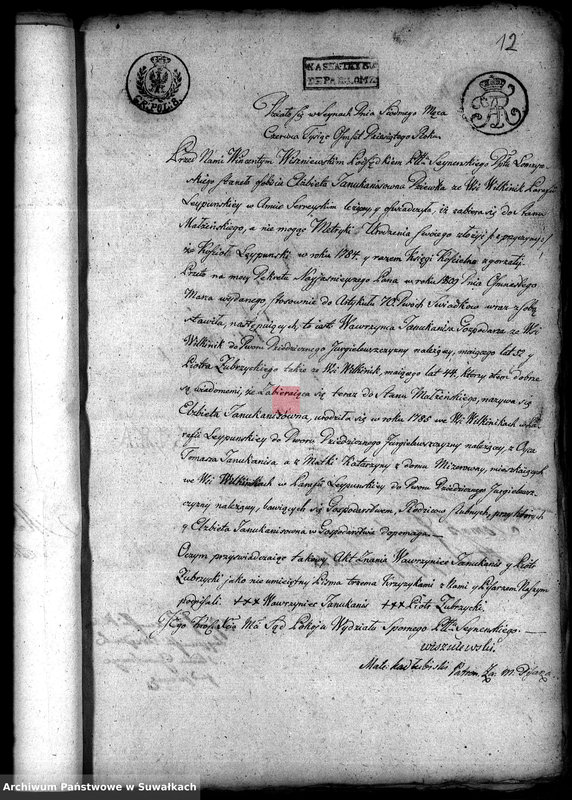 12
KS. POL. S.
KASSA TRYB.
DEPAR. ŁOMŻ.
Działo się w Seynach Dnia Siodmego Mca
Czerwca Tysiąc Ośmset Dziewiątego Roku.
Przed Nami Wincentym Wiszniewskim Podsędkiem Pttu Seynenskiego Dptu Łomzyn-
skiego staneła osobiście Elzbieta Janukanisowna Dziewka ze Wsi Wilkinik Parafii
Leypunskiey w Amcie Serreyskim lezącey, y oswiadczyła, iż zabiera się do Stanu
Małżeńskiego, a nie mogąc Metryki Urodzenia swoiego złożyć z przyczyny
że Kościoł Leypunski w roku 1784 y razem Księgi Kościelne zgorzały
Przeto na mocy Dekretu Nayjasnieyszego Pana w roku 1809 Dnia
Marca wydanego stosownie do Artykułu 70. Dwoch Swiadkow wraz z sobą
stawiła, następuiących, to iest Wawrzynca Janukanisa Gospodarza ze Wsi
Wilkinik do Dworu Dziedzicznego Jurgieliwszczyzny należący, maiącego lat 52 y
Piotra Zubrzyckiego także ze Wsi Wilkinik, maiącego lat 44, ktorzy o tem dobrze
są wiadomemi, że Zabieraiąca się teraz do Stanu Małżeńskiego, nazywa się
Elzbieta Janukanisowna, urodziła się w roku 1785 we Wsi Wilkinikach w Pa-
rafii Leypunskiey do Dworu Dziedzicznego Jurgieliwszczyzny należącey, z Oyca
Tomasza Janukanisa a z Matki Katarzyny z domu Mizerowny, mieszkaiących
we Wsi Wilkinikach w Parafii Leypunskiey do Dworu Dziedzicznego Jurgieliwsz-
czyzny należący, bawiących się Gospodarstwem, Rodzicow slubnych, przy ktorych
y Elzbieta Janukanisowna w Gospodarstwie dopomaga.
O czym przyswiadczaiąc takowy Akt Znania Wawrzyniec Janukanis y Piotr
Zubrzycki jako nie umieiętni Pisma trzema Krzyżykami z Nami y Pisarzem Naszym
podpisali. +++ Wawrzyniec Janukanis +++ Piotr Zubrzycki.
Sąd Pokoju Wydziału Spornego Pttu Seynenskiego.
Wiszniewski
Archiwum Państwowe w Suwałkach